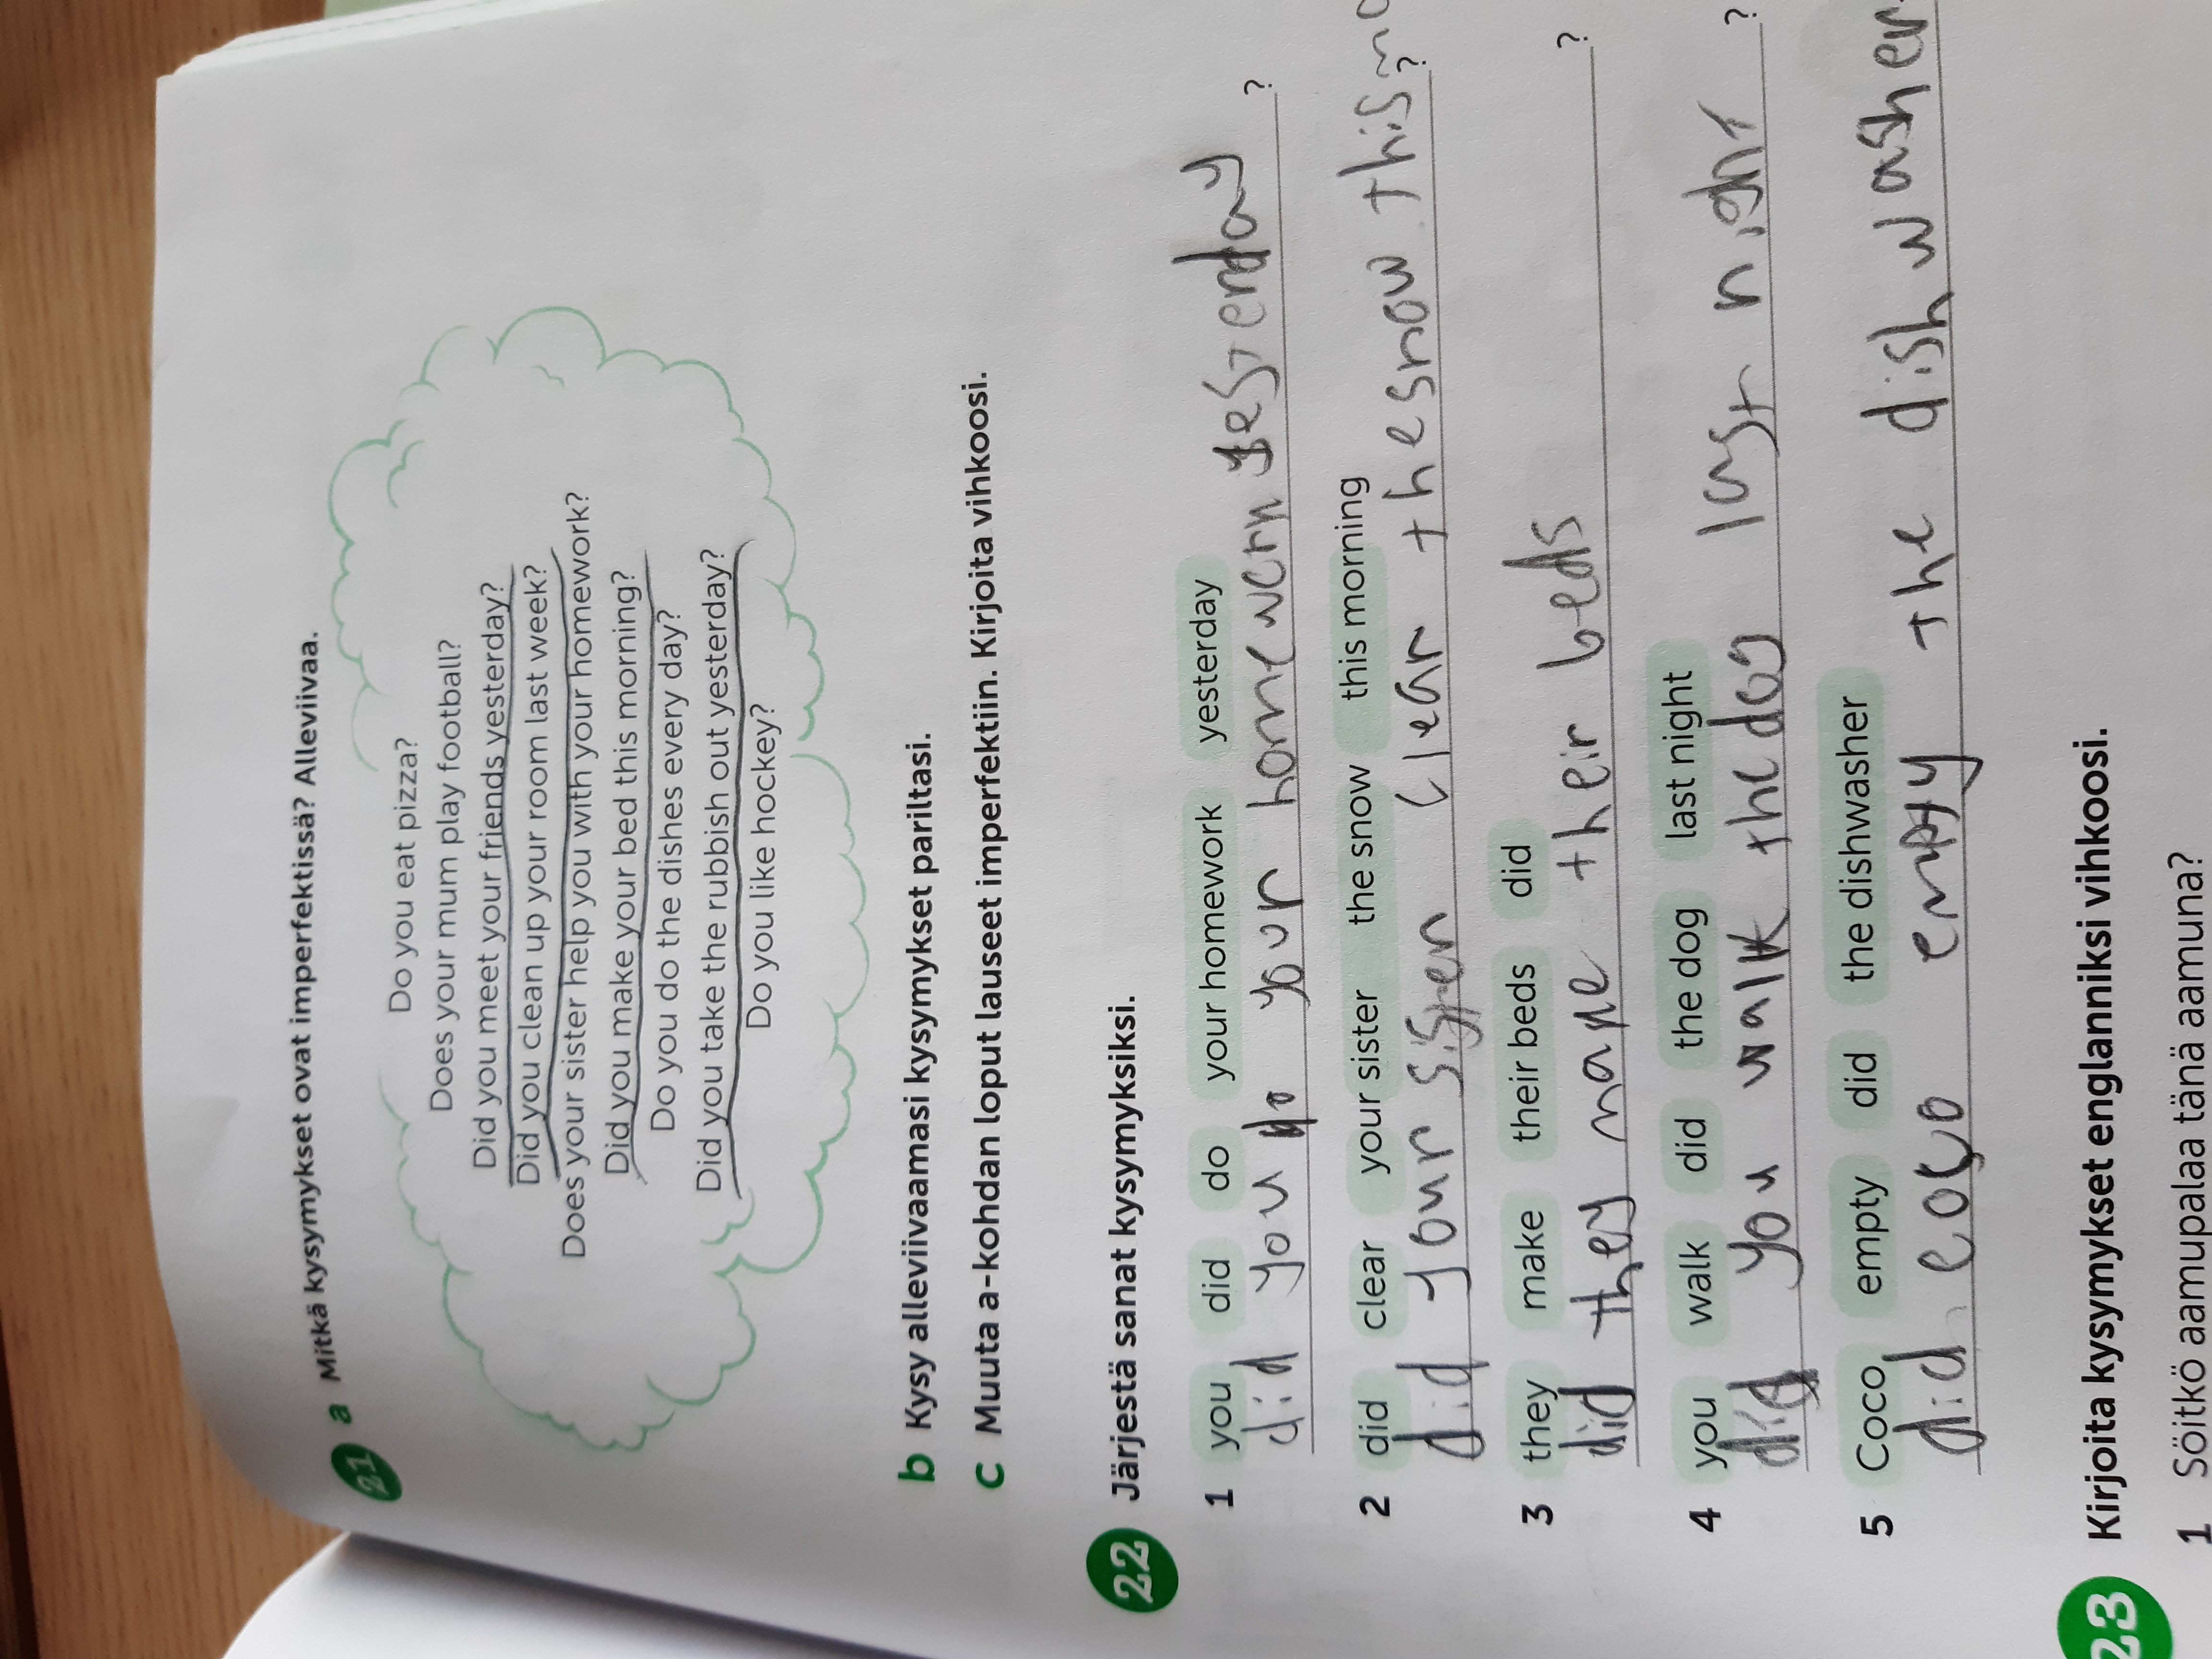 21 a Mitkä kysymykset ovat imperfektissä? Alleviivaa.
Do you eat pizza?
Does your mum play football?
Did you meet your friends yesterday?
Did you clean up your room last week?
Does your sister help you with your homework?
Did you make your bed this morning?
Do you do the dishes every day?
Did you take the rubbish out yesterday?
Do you like hockey?
b Kysy alleviivaamasi kysymykset pariltasi.
c Muuta a-kohdan loput lauseet imperfektiin. Kirjoita vihkoosi.
22 Järjestä sanat kysymyksiksi.
1 you did do your homework yesterday
did you do your homework yesterday ?
2 did clear your sister the snow this morning
did your sister clear the snow this ?
3 they make their beds did
did they make their beds ?
4 you walk did the dog last night
did you walk the dog last night ?
5 Coco empty did the dishwasher
did coco empty the dishwasher
23 Kirjoita kysymykset englanniksi vihkoosi.
1 Söitkö aamupalaa tänä aamuna?